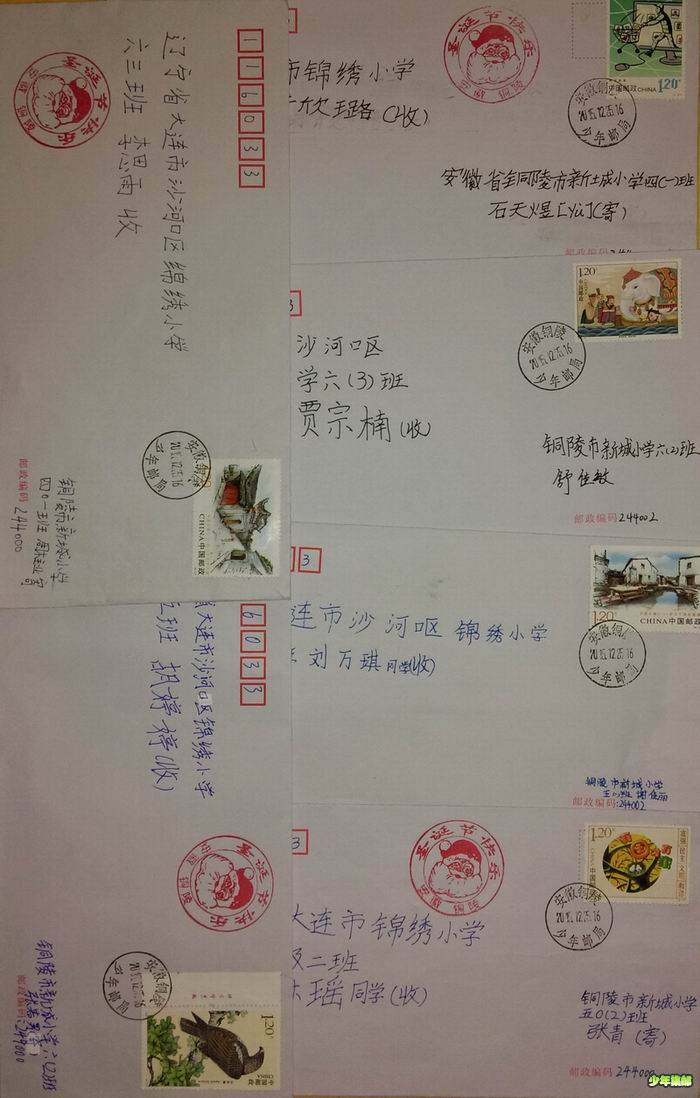 116033
辽宁省大连市沙河口区绵绣小学
六三班
收
圣诞节快乐
安徽 铜陵
安徽铜陵
2015.12.25.16
少年邮局
CHINA中国邮政
铜陵市新城小学
四0一班
邮政编码 244000
市锦绣小学
(收)
圣诞节快乐
安徽 铜陵
中国邮政 CHINA 1.20
2015.12.25.16
少年邮局
安徽省铜陵市新城小学四(一)班
石天煜[yù](寄)
邮政编码
3
沙河口区
学六(3)班
贾宗楠(收)
1.20
中国邮政
CHINA
安徽铜陵
2015.12.25.16
少年邮局
铜陵市新城小学六(2)班
舒佳敏
邮政编码 244002
3
连市沙河口区 锦绣小学
刘万琪 同学(收)
1.20
CHINA中国邮政
2015.12.25.16
少年邮局
铜陵市新城小学
邮政编码:244002
6033
大连市沙河口区锦绣小学
班 胡婷婷(收)
圣诞节快乐
安徽 铜陵
少年邮局
1.20
中国邮政
CHINA
铜陵市新城小学六(2)班
邮政编码:244000
3
大连市锦绣小学
级二班
瑶同学(收)
圣诞节快乐
安徽 铜陵
1.20
CHINA
中国邮政
富强 民主 文明 和谐
安徽铜陵
2015.12.25.16
少年邮局
铜陵市新城小学
五0(2)班
张青(寄)
邮政编码 244000
少年集邮